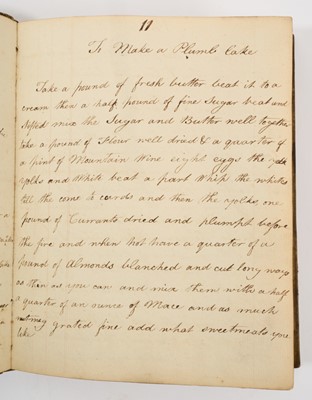 11
To Make a Plumb Cake
Take a pound of fresh butter beat it to a
cream then a half pound of fine Sugar beat and
Sifted mix the Sugar and Butter well togethe
take a pound of Flour well dried & a quarter of
a pint of Mountain Wine eight eggs the
yolks and White beat a part Whip the whites
till the come to curds and then the yolks, one
pound of Currants dried and plumpt before
the fire and when hot have a quarter of a
pound of Almonds blanched and cut long ways
as thin as you can and mix them with a half
a quarter of an ounce of Mace and as much
nutmeg grated fine add what sweetmeats you
like